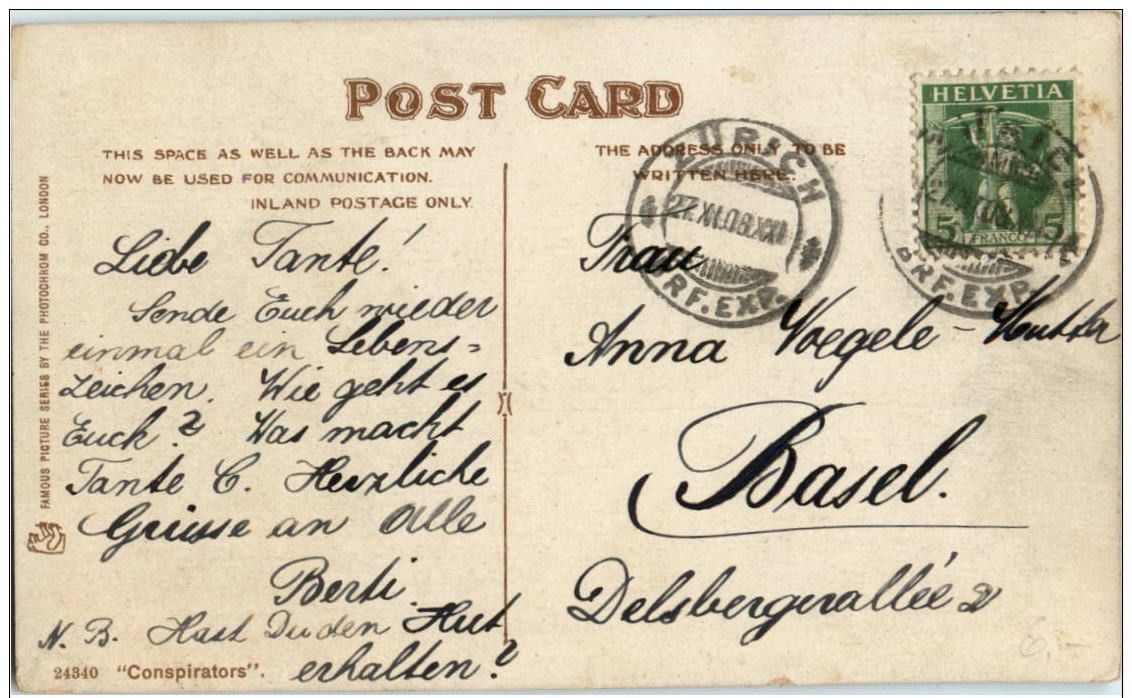 POST CARD
THIS SPACE AS WELL AS THE BACK MAY
NOW BE USED FOR COMMUNICATION.
INLAND POSTAGE ONLY.
THE ADDRESS ONLY TO BE
WRITTEN HERE.
FAMOUS PICTURE SERIES BY THE PHOTOCHROM CO., LONDON
Liebe Tante!
Sende Euch wieder
einmal ein Lebens=
zeichen. Wie geht es
Euch? Was macht
Tante C. Herzliche
Grüsse an Alle
Berti.
N. B. Hast Du den Hut
erhalten?
24340 "Conspirators".
ZÜRICH
22.XII.08.XXI
BRF.EXP.
HELVETIA
5 5
FRANCO
ZÜRICH
BRF.EXP.
Frau
Anna Voegele-
Basel.
Delsbergerallée 2
6.-